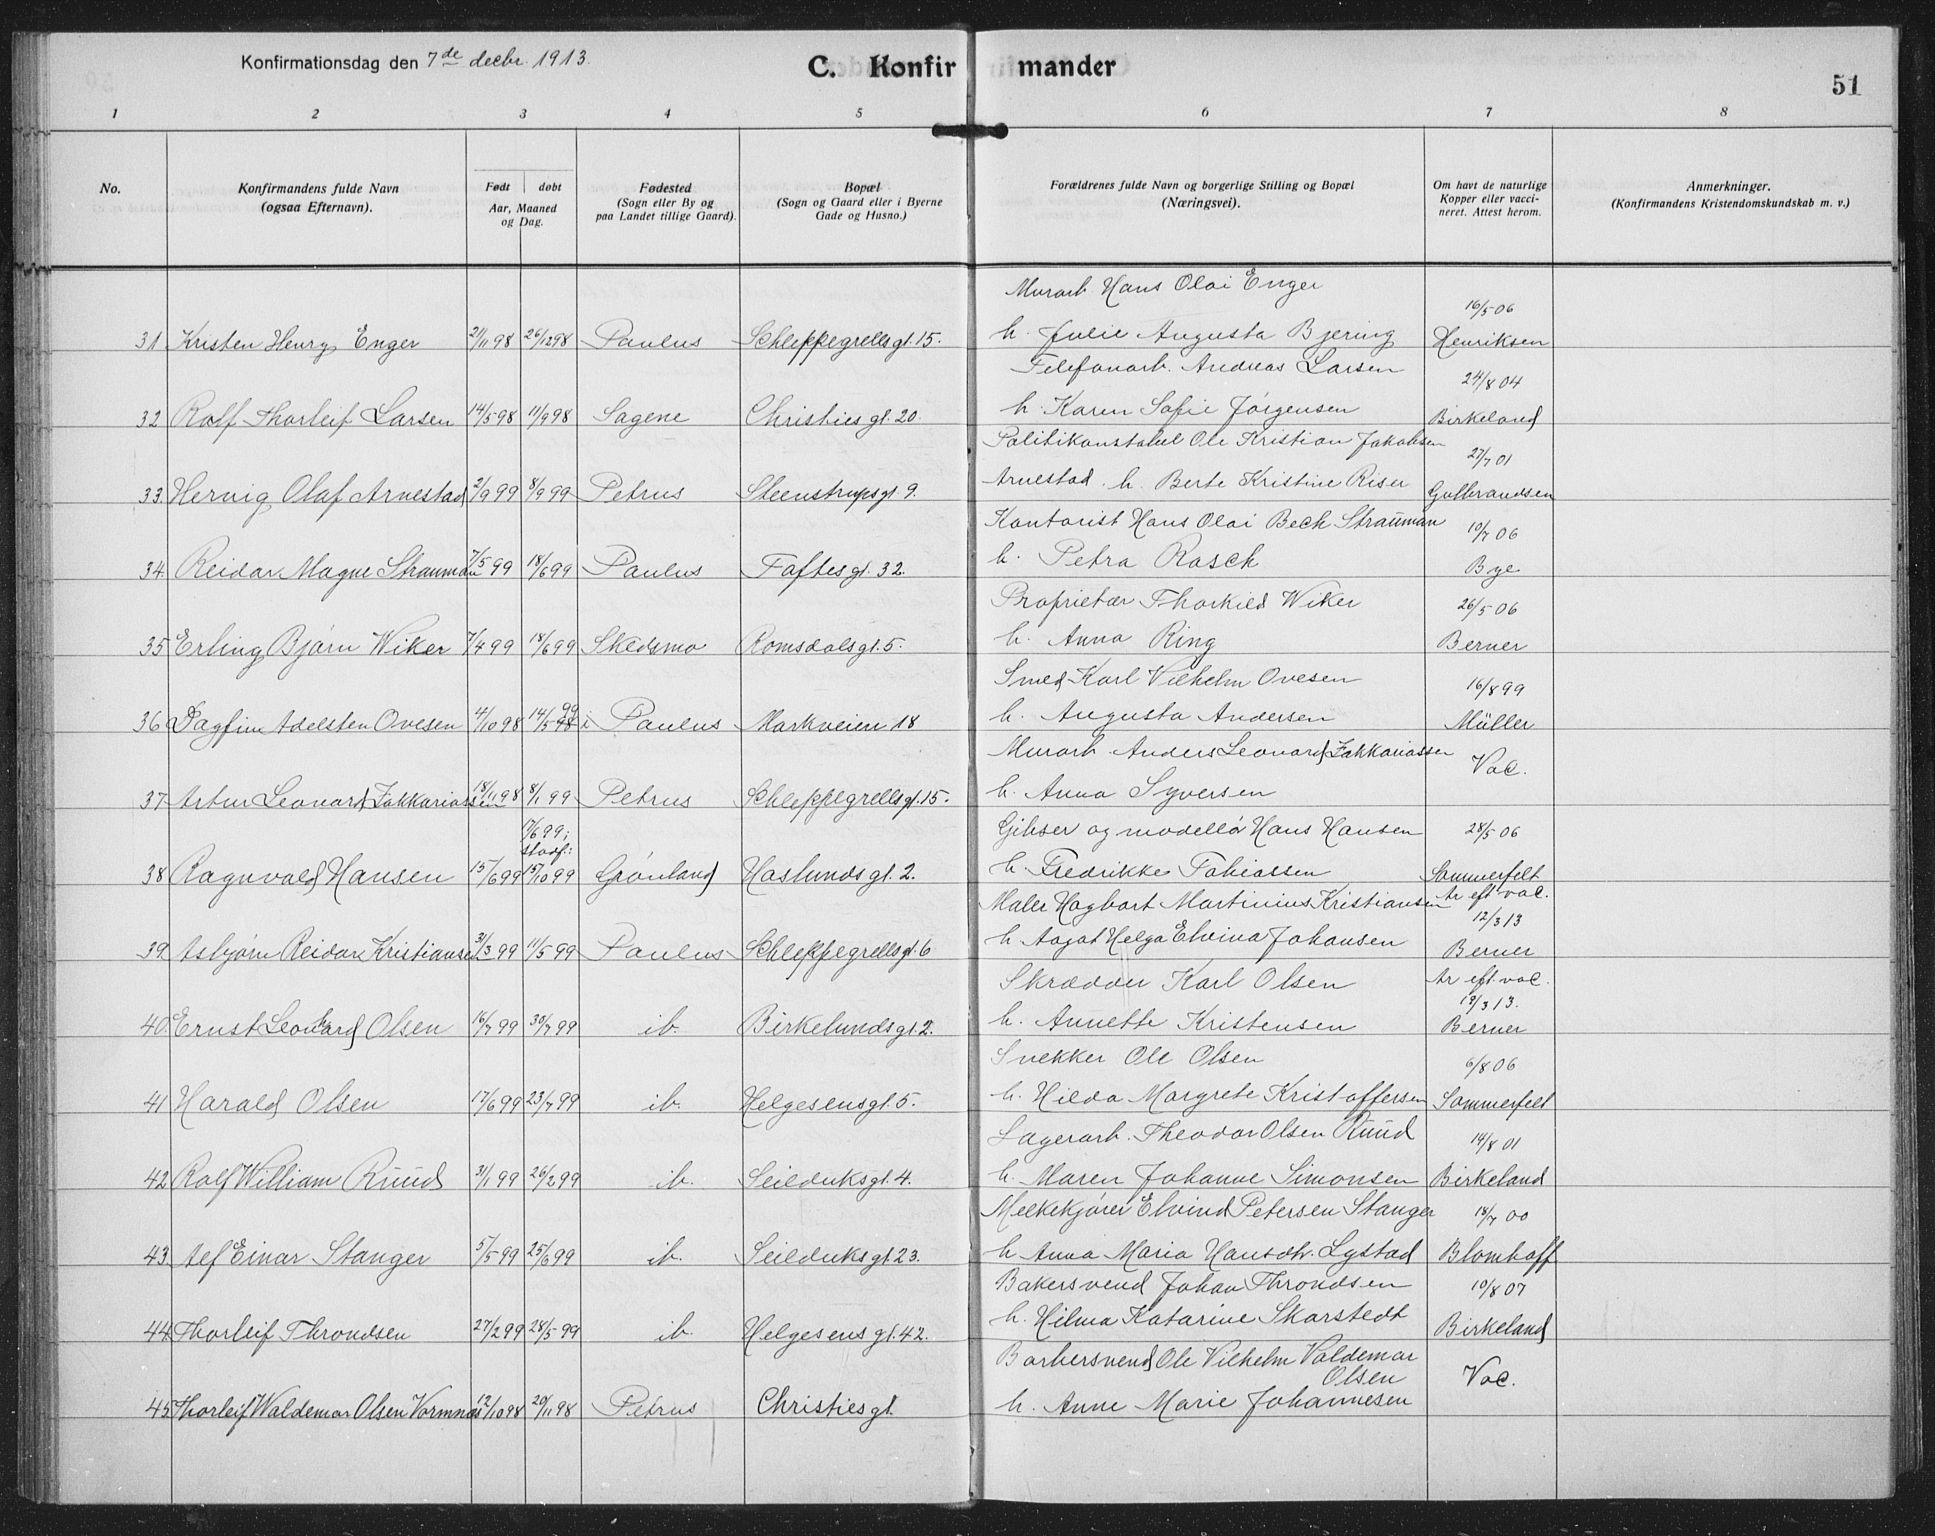 Konfirmationsdag den 7de decbr. 1913.
C. Konfirmander
51
1 2 3 4 5 6 7 8
No.
Konfirmandens fulde Navn
(ogsaa Efternavn).
Født døbt
Aar, Maaned
og Dag.
Fødested
(Sogn eller By og
paa Landet tillige Gaard).
Bopæl
(Sogn og Gaard eller i Byerne
Gade og Husno.)
Forældrenes fulde Navn og borgerlige Stilling og Bopæl
(Næringsvei).
Om havt de naturlige
Kopper eller vacci-
neret. Attest herom.
Anmerkninger.
(Konfirmandens Kristendomskundskab m. v.)
Murarb. Hans Olai Enger
16/5 06
31 Kristen Henry Enger 21/11 98 26/12 98 Paulus Schleppegrellsgt. 15. h. Julie Augusta Bjering Henriksen
Telefonarb. Andreas Larsen
24/8 04
32 Rolf Thorleif Larsen 14/5 98 11/9 98 Sagene Christiesgt. 20. h. Karen Sofie Jørgensen Birkeland
Politikonstabel Ole Kristian Jakobsen
27/7 01
33. Hervig Olaf Arnestad 2/9 99 8/9 99 Petrus Steenstrupsgt. 9. Arnestad. h. Berte Kristine Riser Gulbrandsen
Kontorist Hans Olai Beck Strauman
10/7 06
34. Reidar Magne Strauman 7/5 99 18/6 99 Paulus Toftesgt. 32. h. Petra Rasch Bye
Proprietær Thorkild Wiker
26/5 06
35 Erling Bjørn Wiker 7/4 99 18/6 99 Skedsmo Romsdalsgt. 5. h. Anna Ring Berner
Smed Karl Vilhelm Ovesen
16/8 99
36 Dagfinn Adelsten Ovesen 4/10 98 14/5 98 99 i Paulus Markveien 18 h. Augusta Andersen Müller
Murarb. Anders Leonard Zakkariassen
Vac.
37 Artur Leonard Zakkariassen 18/11 98 8/1 99 Petrus Schleppegrellsgt. 15. h. Anna Syversen
7/6 99;
stadf.:
Gibser og modellør Hans Hansen
28/5 06
38 Ragnvald Hansen 15/6 99 15/10 99 Grønland Haslundsgt. 2. h. Fredrikke Tobiassen Sommerfelt
Maler Hagbart Martinius Kristiansen
Ar eft. vac.
12/3 13
39. Asbjørn Reidar Kristiansen 31/3 99 11/5 99 Paulus Schleppegrellsgt. 6 h. Aagot Helga Elvina Johansen Berner
Skrædder Karl Olsen
Ar eft. vac.
12/3 13.
40. Ernst Leonhard Olsen 16/7 99 30/7 99 ib. Birkelundsgt. 2. h. Annette Kristensen Berner
Snekker Ole Olsen
6/8 06
41 Harald Olsen 17/6 99 23/7 99 ib. Helgesensgt. 5. h. Hilda Margrete Kristoffersen Sommerfelt
Lagerarb. Theodor Olsen Ruud
14/8 01
42 Rolf William Ruud 31/1 99 26/2 99 ib. Seilduksgt. 4. h. Maren Johanne Simonsen Birkeland
Melkekjører Elvind Petersen Stanger
18/7 00
43. Alf Einar Stanger 5/5 99 25/6 99 ib. Seilduksgt. 23. h. Anna Maria Hansdtr. Lystad Blomhoff
Bakersvend Johan Throndsen
10/8 07
44. Thorleif Throndsen 27/2 99 28/5 99 ib. Helgesensgt. 42. h. Hilma Katarine Skarstedt Birkeland
Barbersvend Ole Vilhelm Valdemar
Olsen
Vac.
45. Thorleif Waldemar Olsen Vormnes 12/10 98 20/11 98 Petrus Christiesgt. h. Anne Marie Johannesen